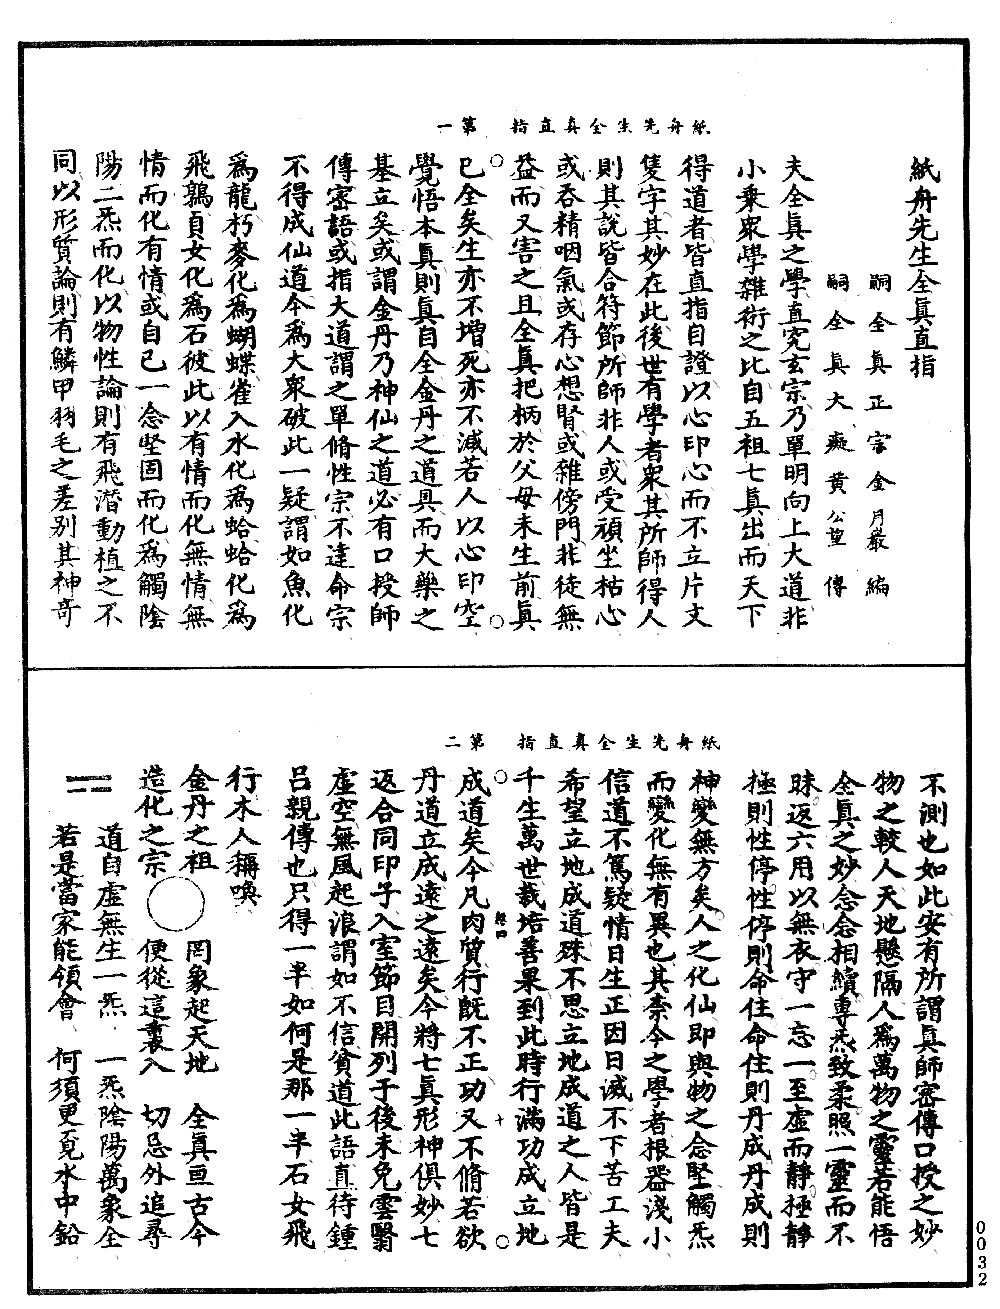 紙舟先生全真直指
嗣全真正宗金月巖編
嗣全真大癡黃公望傳
夫全真之學直究玄宗乃單明向上大道非
小乘衆學雜術之比自五祖七真出而天下
得道者皆直指自證以心印心而不立片文
隻字其妙在此後世有學者衆其所師得人
則其說皆合符節所師非人或受頑坐枯心
或吞精咽氣或存心想腎或雜傍門非徒無
益而又害之且全真把柄於父母未生前真
已全矣生亦不增死亦不減若人以心印空
覺悟本真則真自全金丹之道具而大藥之
基立矣或謂金丹乃神仙之道必有口授師
傳密語或指大道謂之單脩性宗不達命宗
不得成仙道今為大衆破此一疑謂如魚化
為龍朽麥化為蝴蝶雀入水化為蛤蛤化為
飛鶉貞女化為石彼此以有情而化無情無
情而化有情或自己一念堅固而化為觸陰
陽二炁而化以物性論則有飛潛動植之不
同以形質論則有鱗甲羽毛之差別其神奇
紙舟先生全真直指 第一
不測也如此安有所謂真師密傳口授之妙
物之較人天地懸隔人為萬物之靈若能悟
全真之妙念念相續專炁致柔照一靈而不
昧返六用以無衣守一忘一至虛而靜極靜
極則性停性停則命住命住則丹成丹成則
神變無方矣人之化仙即與物之念堅觸炁
而變化無有異也其柰今之學者根器淺小
信道不篤疑情日生正因日滅不下苦工夫
希望立地成道殊不思立地成道之人皆是
千生萬世栽培善果到此時行滿功成立地
成道矣今凡肉質行既不正功又不脩若欲
丹道立成遠之遠矣今將七真形神俱妙七
返合同印子入室節目開列于後未免雲翳
虛空無風起浪謂如不信貧道此語直待鍾
呂親傳也只得一半如何是那一半石女飛
行木人稱喚
金丹之祖 罔象起天地 全真亘古今
造化之宗 便從這裏入 切忌外追尋
道自虛無生一炁 一炁陰陽萬象全
若是當家能領會 何須更覓水中鉛
紙舟先生全真直指 第二
經四
十
0032